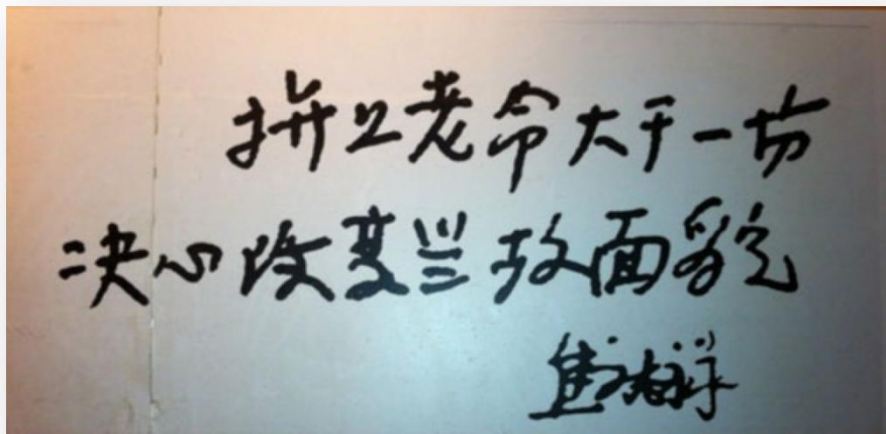 拼上老命大干一场
决心改变兰攷面貌
焦裕禄